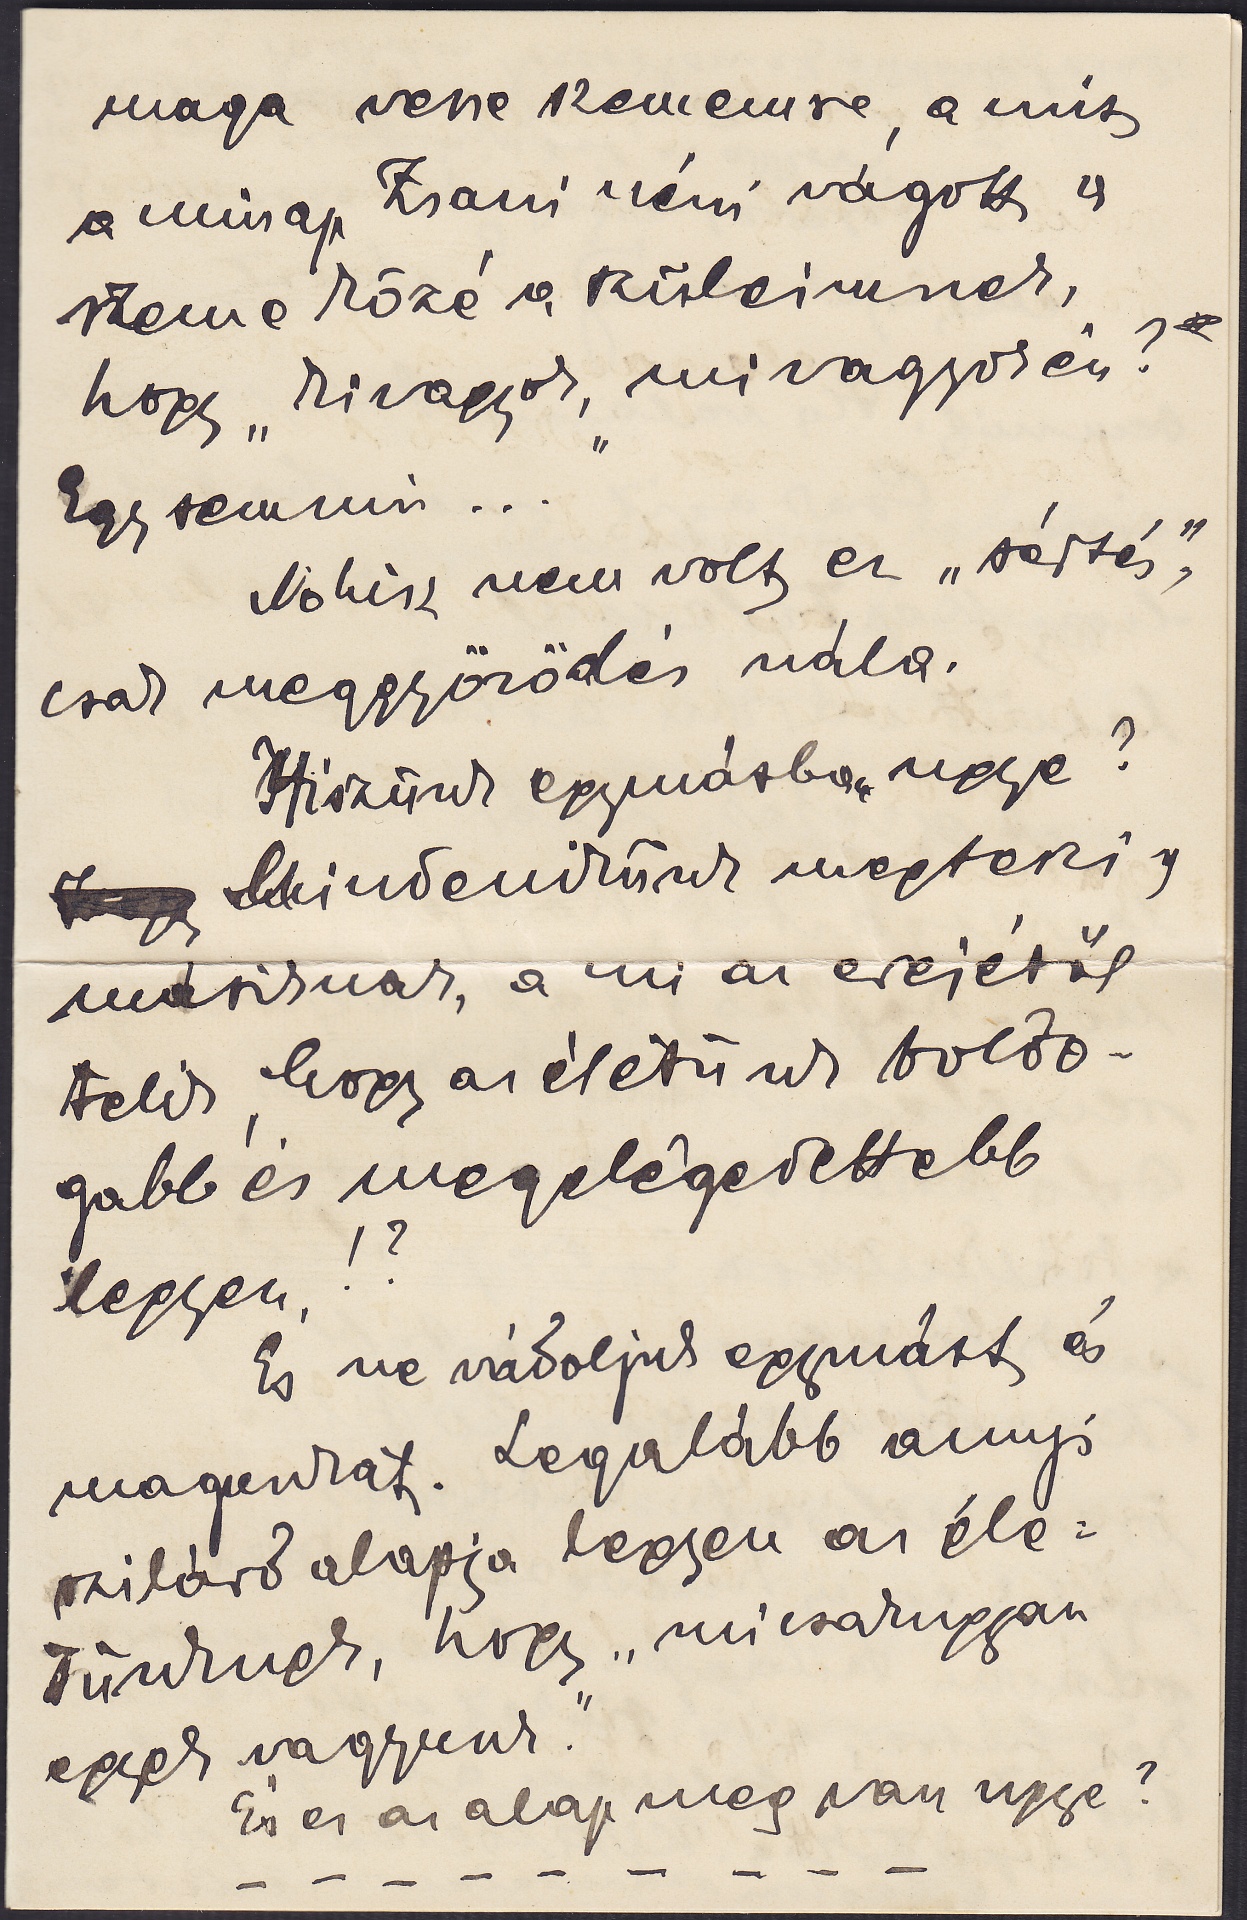 maga vesse szememre, a mit
a minap Zsani néni vágott a
szeme közé a szüleimnek,
hogy „ki vagyok, mi vagyok én?
Egy semmi ...
Nohisz nem volt ez „sértés”,
csak meggyőződés nála.
Hiszünk egymásban ugye?
Mindenikünk megteszi a
másiknak, a mi az erejétől
telik, hogy az életünk boldo-
gabb és megelégedettebb
legyen,!?
És ne vádoljuk egymást és
magunkat. Legalább annyi
szilárd alapja legyen az éle=
tünknek, hogy „mi csakugyan
egyek vagyunk.”
És ez az alap meg van ugye?
– – – – – – – – –